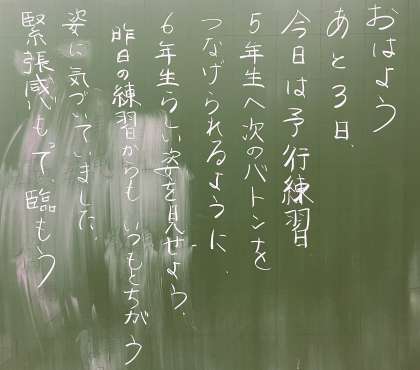 おはよう
あと3日、
今日は予行練習
5年生へ次のバトンを
つなげられるように、
6年生らしい姿を見せよう、
昨日の練習からも いつもとちがう
姿に気づいていました、
緊張感もって、臨もう